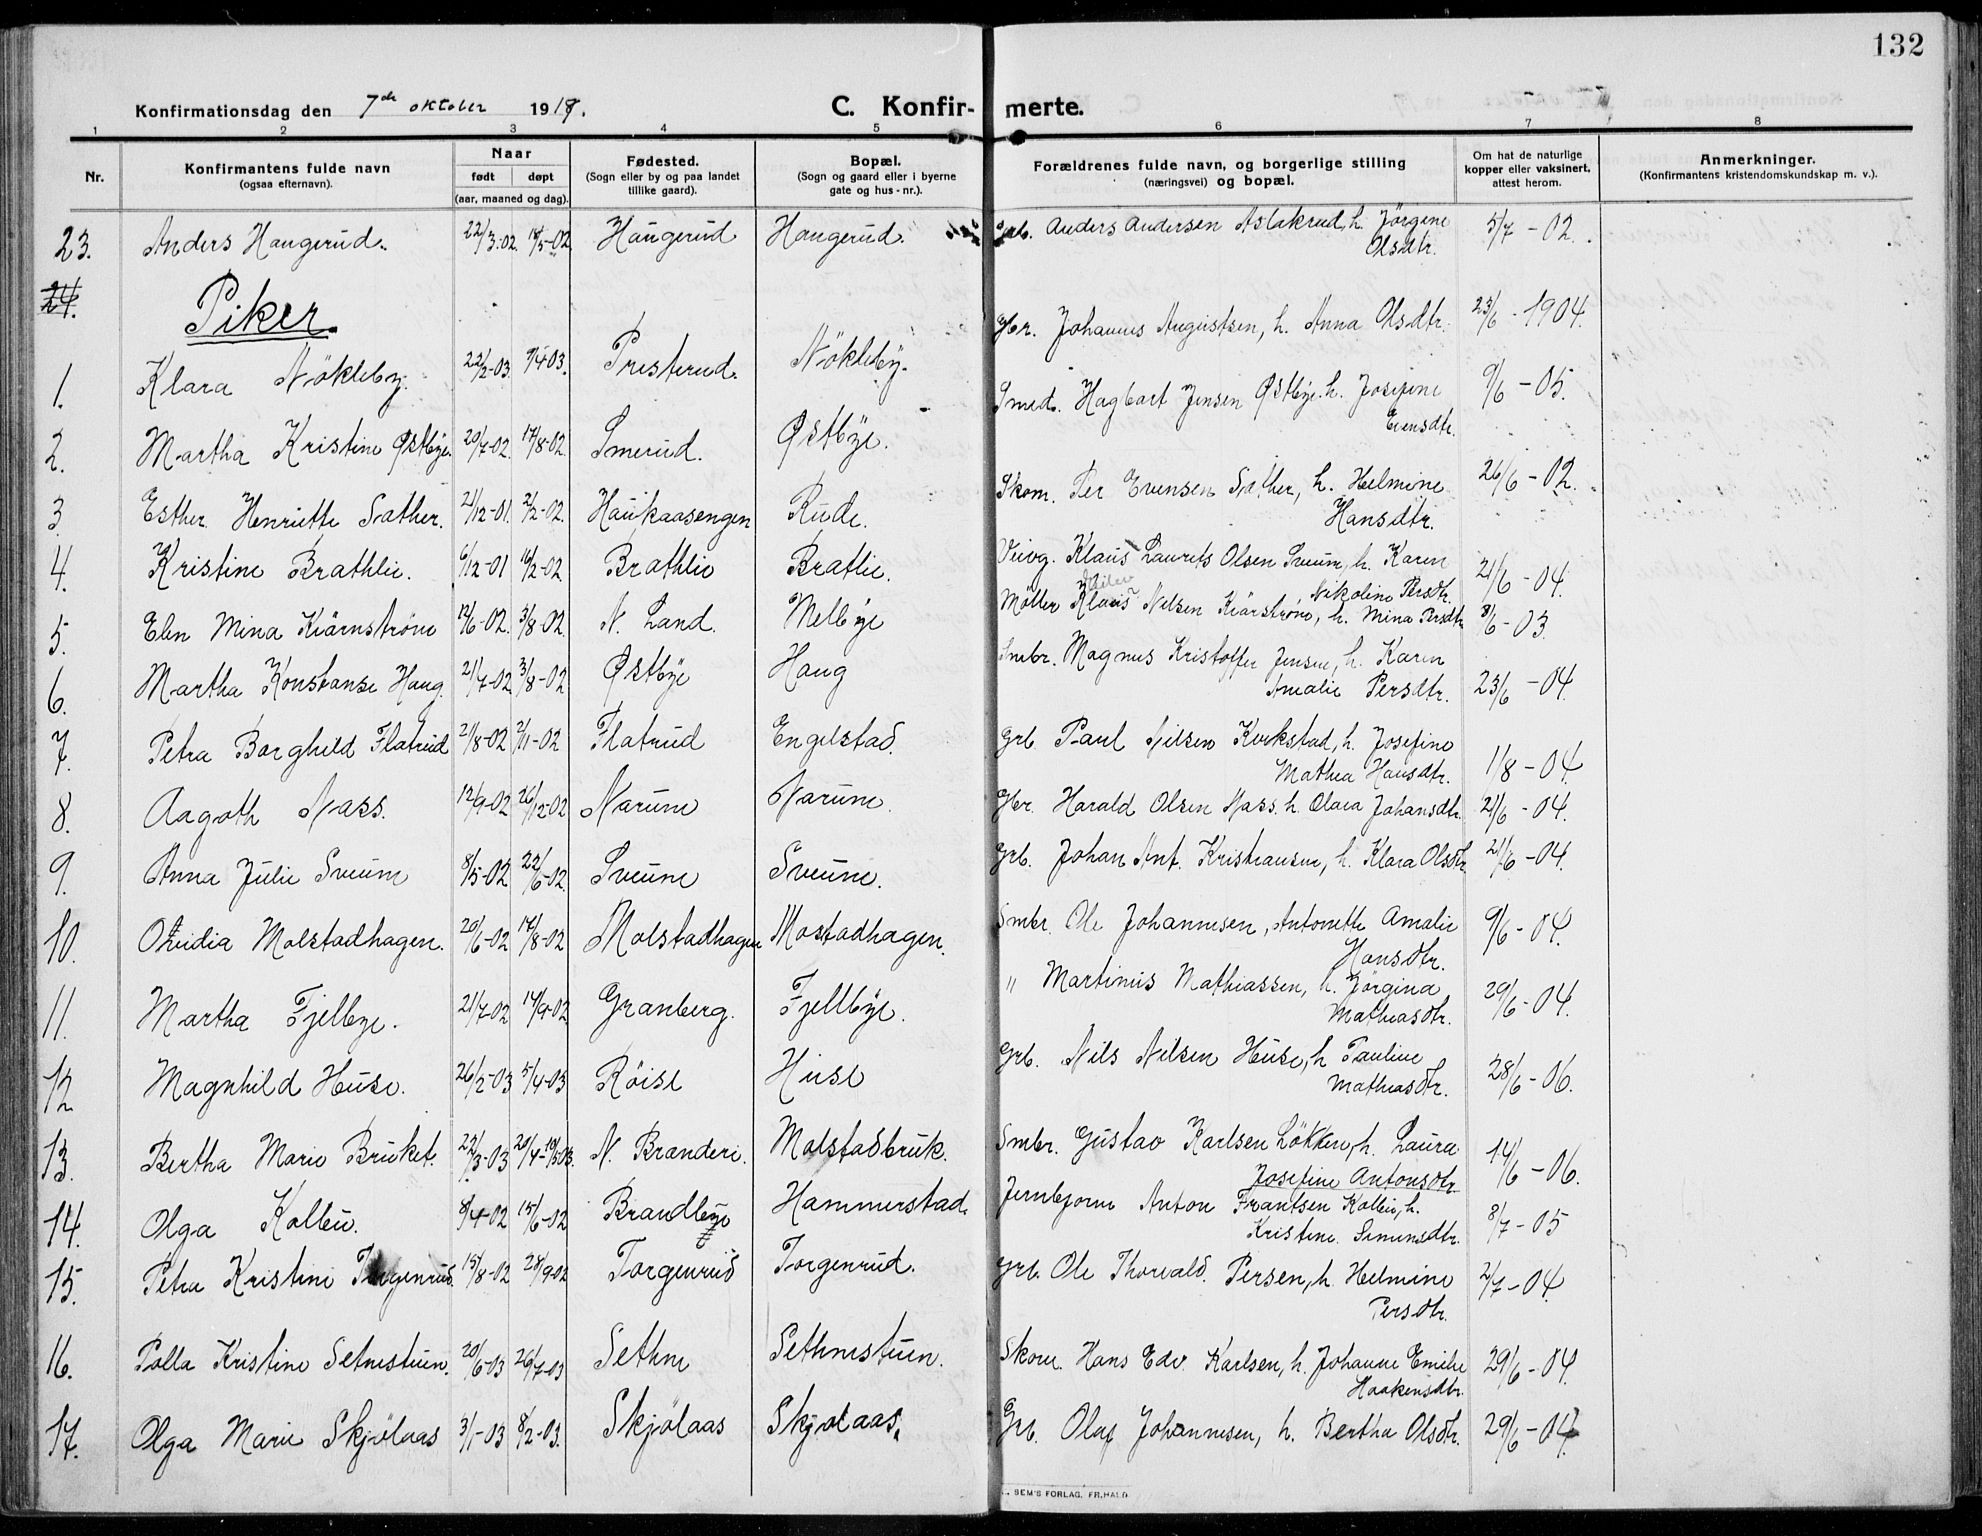 132
Konfirmationsdag den 7de oktober 1917.
C. Konfir-merte.
1 2 3 4 5 6 7 8
Nr.
Konfirmantens fulde navn
(ogsaa efternavn).
Naar
født døpt
(aar, maaned og dag).
Fødested.
(Sogn eller by og paa landet
tillike gaard).
Bopæl.
(Sogn og gaard eller i byerne
gate og hus - nr.).
Forældrenes fulde navn, og borgerlige stilling
(næringsvei) og bopæl.
Om hat de naturlige
kopper eller vaksinert,
attest herom.
Anmerkninger.
(Konfirmantens kristendomskundskap m. v.).
23. Anders Haugerud. 22/3-02. 18/5-02 Haugerud Haugerud. Anders Andersen Aslakrud, h. Jörgine
Olsdtr. 5/7 - 02.
24.
Piker.
1. Klara Nökleby. 22/2-03. 9/4 03. Presterud. Nökleby. Gbr. Johannes Augustsen, h. Anna Olsdtr. 23/6 - 1904.
2. Martha Kristine Østbye. 20/7-02. 17/8-02. Smerud. Østbye. Smed. Hagbart Jensen Østbye. h. Josefine
Evensdtr. 9/6 - 05.
3 Esther Henriette Sæther. 21/12-01. 2/2-02. Haukaasengen Rude. Skom. Per Evensen Sæther, h. Helmine
Hansdtr. 26/6 - 02.
4. Kristine Brathlie. 6/12-01 16/2-02 Brathlie Bratlie. Veivog. Klaus Laurits Olsen Sveum, h. Karen
Nikoline Persdtr. 21/6 - 04.
5. Elen Mina Kiärnström 12/6-02. 3/8-02. N. Land. Melbye Möller Klaus Nelsen Kiärström, h. Mina Persdtr 8/6 - 03.
6. Martha Konstanse Haug. 21/7-02 3/8-02 Østbye Haug Smbr. Magnus Kristoffer Jensen, h. Karen
Amalie Persdtr. 23/6 - 04.
7. Petra Borghild Flatrud 21/8-02 2/11-02 Flatrud Engelstad. Grb. Paul Nilsen Kvikstad, h. Josefine
Mathea Hansdtr. 1/8 - 04
8. Aagoth Næss. 12/9-02 26/12-02 Narum Narum Gbr. Harald Olsen Næss. h. Olava Johansdtr. 21/6 - 04.
9. Anna Julie Sveum 8/5-02 22/6-02. Sveum Sveum. Grb. Johan Ant. Kristiansen, h. Klara Olsdtr 21/6 - 04.
10. Ovidia Molstadhagen. 20/6-02 17/8-02 Molstadhagen Mostadhagen. Smbr. Ole Johannesen, Antonette Amalie
Hansdtr. 9/6 - 04.
11. Martha Fjelbye. 21/7-02 14/9-02 Granberg. Fjellbye. " Martinus Mathiassen, h. Jörgina
Mathiasdtr. 29/6 - 04.
12 Magnhild Huse. 26/2-03 5/4-03 Röise Huse Grb. Nils Nelsen Huse, h Pauline
Mathiasdtr. 28/6 - 06.
13. Bertha Marie Bruket. 22/3-03 20/4-10/5 03. N. Branderi. Molstadbruk. Smbr. Gustav Karlsen Lökken, h. Laura
Josefine Antonsdtr. 14/6 - 06.
14. Olga Kollen. 8/4-02 15/6-02 Brandbye Hammerstad. Anton Frantsen Kollen, h.
Kristine Simensdtr. 8/7 - 05
15. Petra Kristine Torgenrud. 15/8-02 28/9-02 Torgenrud Torgenrud. Grb. Ole Thorvald. Persen, h. Helmine
Persdtr. 2/7 - 04.
16. Polla Kristine Setnestuen. 20/6-03 26/7-03 Sethne Sethnestuen. Skom. Hans Edv. Karlsen, h. Johanne Emilie
Haakensdtr. 29/6 - 04.
17. Olga Marie Skjölaas 3/1-03 8/2-03. Skjölaas Skjölaas. Grb. Olaf Johannesen, h. Bertha Olsdtr. 29/6 - 04.
SEM'S FORLAG, FR.HALD.